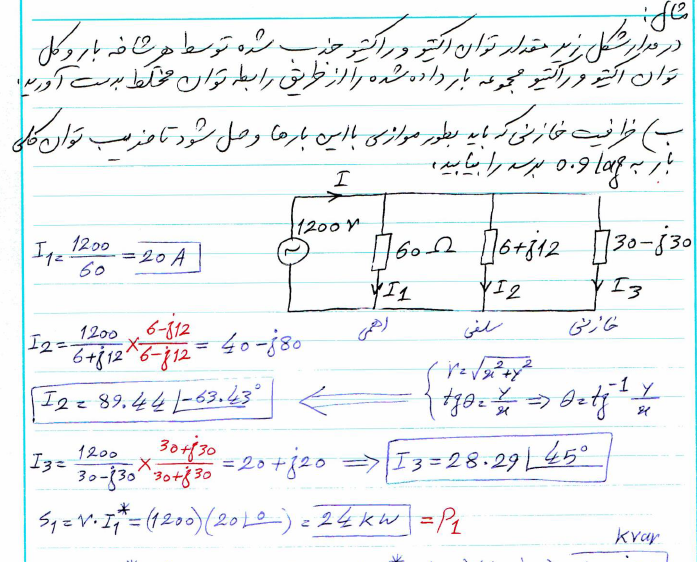 مثال:
در مدار شکل زیر مقدار توان اکتیو و راکتیو جذب شده توسط هر شاخه بار و کل
توان اکتیو و راکتیو مجموعه بار داده شده را از طریق رابطه توان مختلط بدست آورید.
ب) ظرفیت خازنی که باید بطور موازی با این بارها وصل شود تا ضریب توان کلی
بار به 0.9 lag برسد را بیابید.
I
1200 V
60 Ω
6+j12
30-j30
I1
I2
I3
اهمی
سلفی
خازنی
I1 = 1200/60 = 20 A
I2 = 1200/(6+j12) × (6-j12)/(6-j12) = 40-j80
I2 = 89.44∠-63.43°
r=√(x²+y²)
tgθ = y/x ⇒ θ = tg⁻¹ y/x
I3 = 1200/(30-j30) × (30+j30)/(30+j30) = 20+j20 ⇒ I3 = 28.29∠45°
S1 = V·I1* = (1200)(20∠0) = 24 kW = P1
kvar